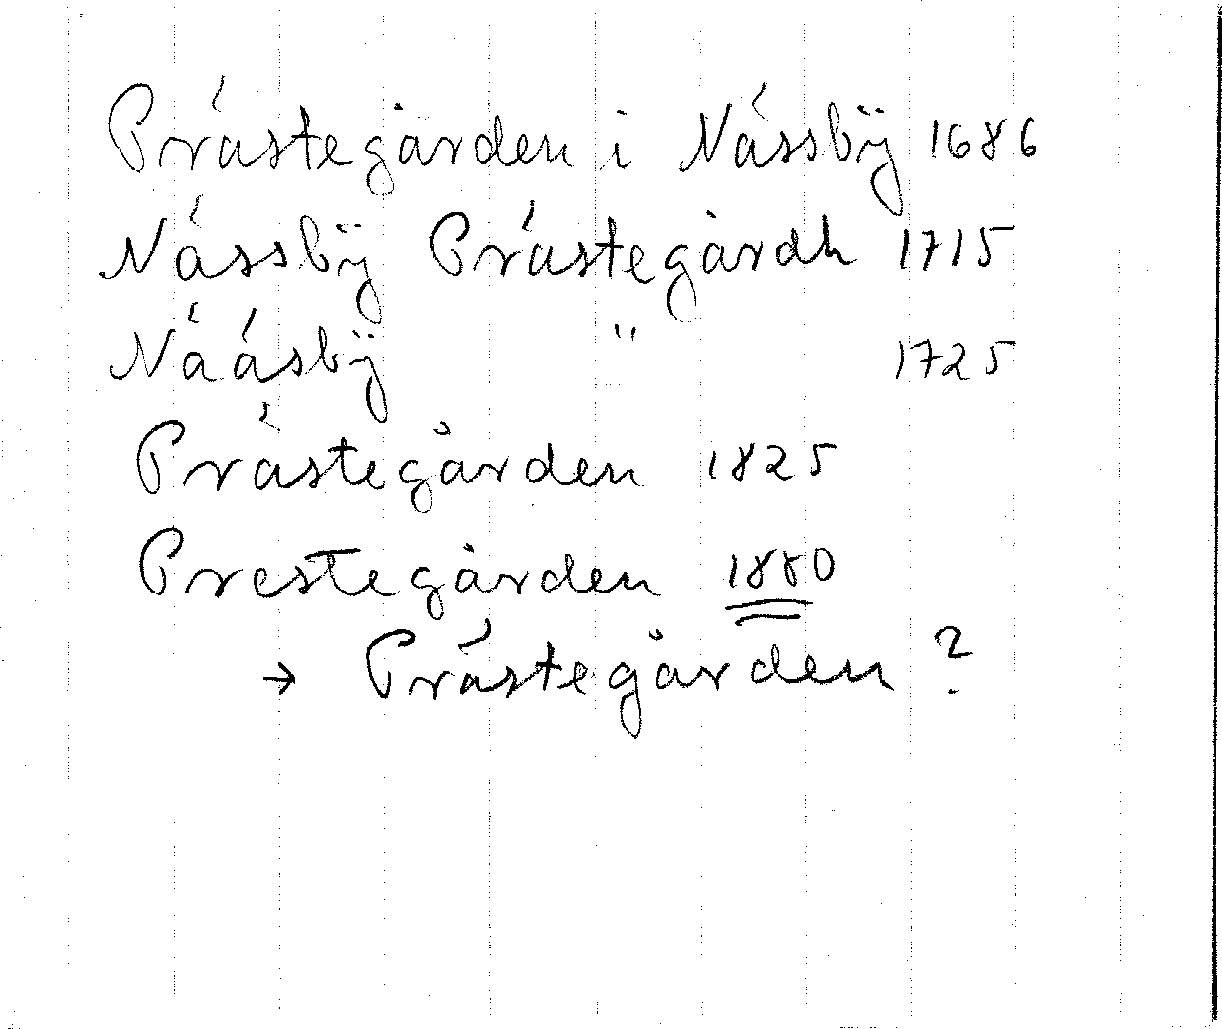 Prástegården i Nássbÿ 1686
Nássbÿ Prástegårdh 1715
Náásbÿ " 1725
Prástegården 1825
Prestegården 1880
→ Prástegården ?